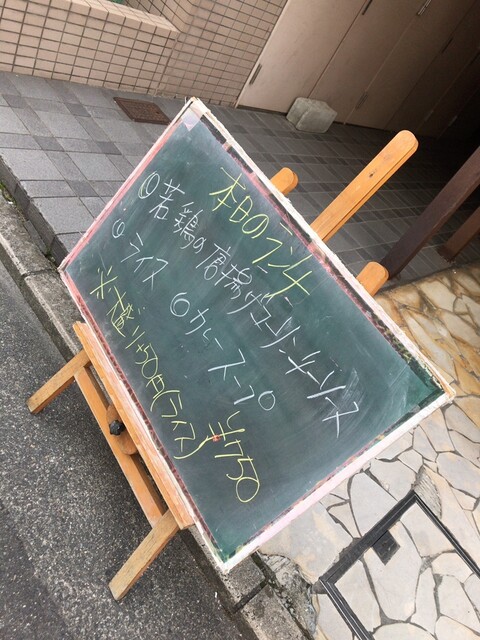 本日のランチ
◎若鶏の唐揚げユーリンチーソース
◎ライス ◎カレースープ
¥750
※大盛り+50円(ライス)